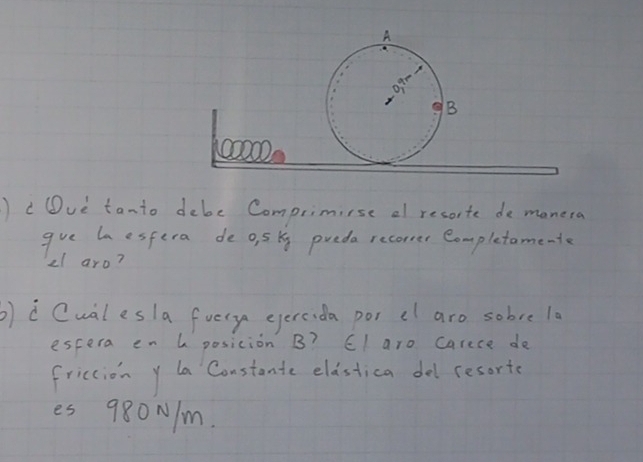 A
0,9m
B
) ¿Qué tanto debe Comprimirse el resorte de manera
que la esfera de 0,5 Kg pueda recorrer Completamente
el aro?
b) ¿Cuál es la fuerza ejercida por el aro sobre la
esfera en la posición B? El aro Carece de
fricción y la Constante elástica del resorte
es 980 N/m.